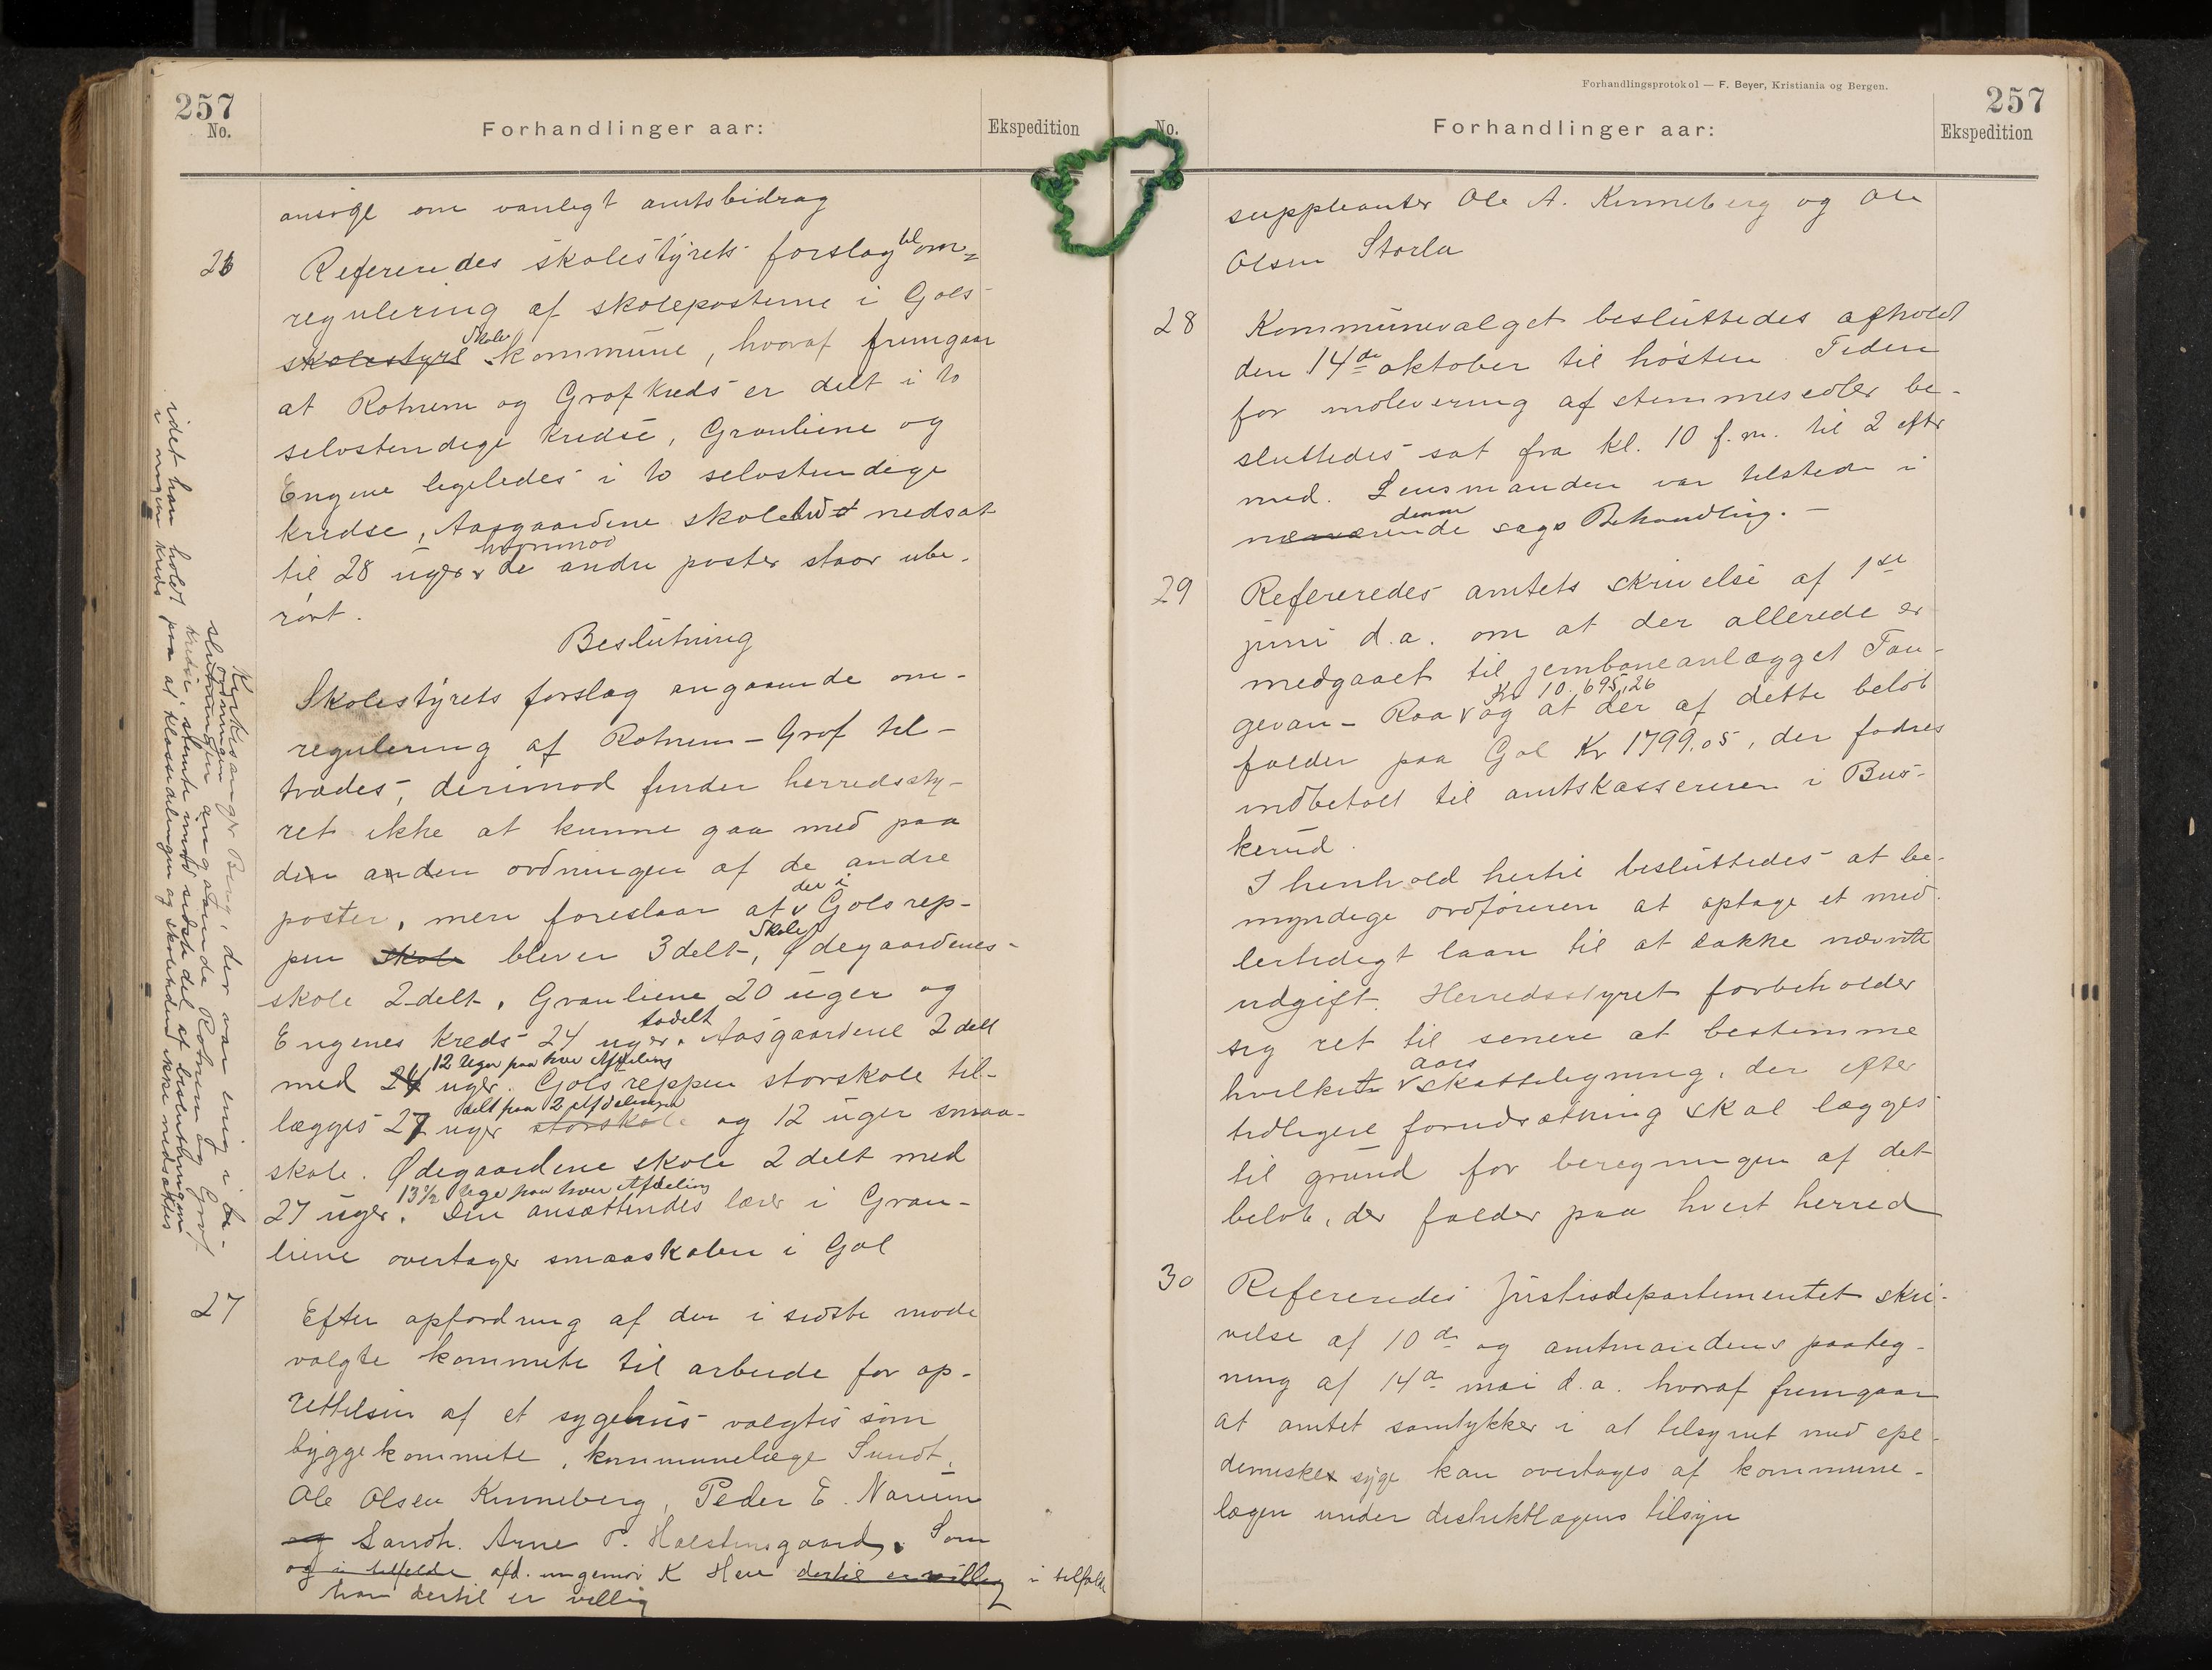 257
No.
Forhandlinger aar:
Ekspedition
ansøge om vanligt amtsbidrag
26
Refereredes skolestyrets forslag til om-
regulering af skoleposterne i Gols
skolestyre skole kommune, hvoraf fremgaar
at Rotnem og Grøf kreds er delt i to
selvstendige kredse, Granliene og
Engene ligeledes i to selvstendige
kredse, Aasgaardene skole nedsat
til 28 uger hvorimod de andre poster staar ube-
rørt.
Beslutning
Skolestyrets forslag angaaende om-
regulering af Rotnem - Grøf til-
trædes, derimod finder herredssty-
ret ikke at kunne gaa med paa
den anden ordningen af de andre
poster, men foreslaar at der i Golsrep-
pen skole bliver 3delt, Skole Ødegaardenes-
skole 2-delt, Granliene 20 uger og
Engenes kreds 24 uger todelt. Aasgaardene 2 delt
med 24 uger. 12 uger paa hver Afdeling Golsreppen storskole til-
lægges 27 uger delt paa 2 afdelinger storskole og 12 uger smaa-
skole. Ødegaardene skole 2 delt med
27 uger. 13 1/2 uge paa hver Afdeling Den ansættendes lærer i Gran-
liene overtager smaaskolen i Gol
Kirkesanger Berg, der var enig i be-
slutningen angaaende Rotnem og Grøf
kredse, stemte imod sidste del af beslutningen
idet han holdt paa at klassedelingen og skoletiden ikke nedsættes
i nogen kreds
27
Efter opfordring af den i sidste møde
valgte kommite til arbeide for op-
rettelsen af et sygehus valgtes som
byggekommite, kommunelæge Sundt,
Ole Olsen Kinneberg, Peder E. Narum
og Sandh. Arne T. Halstensgaard. Som
og i tilfælde afd. ingeniør K Heie dertil er villig i tilfælde
han dertil er villig
Forhandlingsprotokol — F. Beyer, Kristiania og Bergen.
257
No.
Forhandlinger aar:
Ekspedition
suppleanter Ole A. Kinneberg og Ole
Olsen Storla
28
Kommunevalget besluttedes afholdt
den 14de oktober til høsten. Tiden
for indlevering af stemmesedler be-
sluttedes sat fra kl. 10 f.m. til 2 efter
mid. Lensmanden var tilstede i
nærværende denne sags Behandling. -
29
Refereredes amtets skrivelse af 1ste
juni d.a. om at der allerede er
medgaaet til jernbaneanlægget Tan-
gevan - Roa Kr 10.695,26 og at der af dette beløb
falder paa Gol Kr 1799.05, der fodres
indbetalt til amtskassereren i Bus-
kerud.
I henhold hertil besluttedes at be-
myndige ordføreren at optage et mid-
lertidigt laan til at dække nævnte
udgift. Herredsstyret forbeholder
sig ret til senere at bestemme
hvilket aars skatteligning, der efter
tidligere forudsætning skal lægges
til grund for beregningen af det
beløb, der falder paa hvert herred
30
Refereredes Justisdepartementet skri-
velse af 10de og amtmandens paateg-
ning af 14de mai d.a. hvoraf fremgaar
at amtet samtykker i at tilsynet med epi-
demiske syge kan overtages af kommune-
lægen under distriktlægens tilsyn